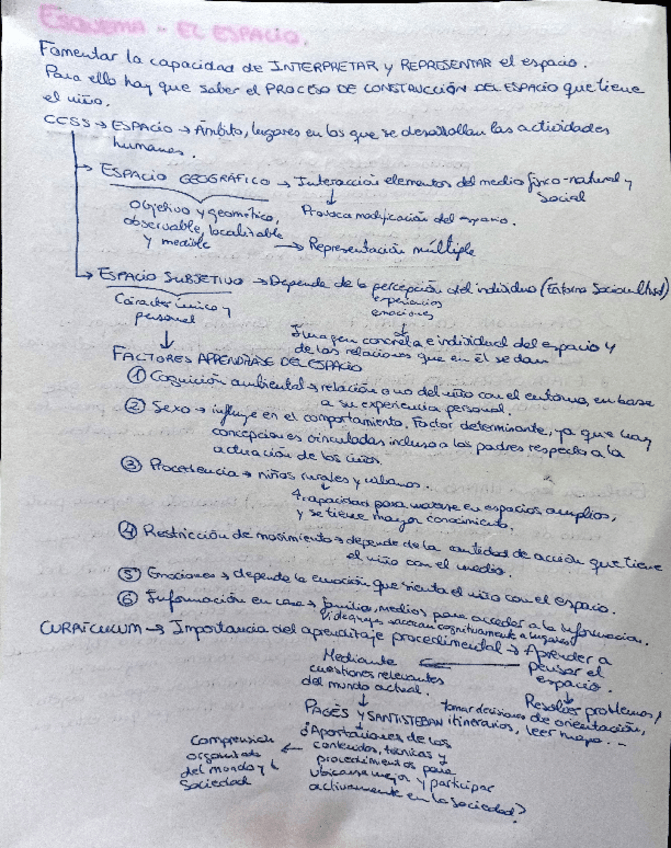 ESQUEMA - EL ESPACIO.
Fomentar la capacidad de INTERPRETAR y REPRESENTAR el espacio.
Para ello hay que saber el PROCESO DE CONSTRUCCIÓN DEL ESPACIO que tiene
el niño.
CCSS → ESPACIO → Ámbito, lugares en los que se desarrollan las actividades
humanas.
→ ESPACIO GEOGRÁFICO → Interacción elementos del medio físico-natural y
social
↓
Objetivo y geométrico, Provoca modificación del espacio.
observable, localizable
y medible → Representación múltiple
→ ESPACIO SUBJETIVO → Depende de la percepción del individuo (Entorno Sociocultural)
experiencias
emociones
Carácter único y
personal
Imagen concreta e individual del espacio y
de las relaciones que en él se dan
↓
FACTORES APRENDIZAJE DEL ESPACIO
① Cognición ambiental → relación o no del niño con el entorno, en base
a su experiencia personal.
② Sexo → influye en el comportamiento. Factor determinante, ya que hay
concepciones vinculadas incluso a los padres respecto a la
actuación de los niños.
③ Procedencia → niños rurales y urbanos.
↓
capacidad para moverse en espacios amplios,
y se tiene mayor conocimiento.
④ Restricción de movimiento → depende de la cantidad de acción que tiene
el niño con el medio.
⑤ Emociones → depende la emoción que sienta el niño con el espacio.
⑥ Información en casa → familia, medios para acceder a la información.
Videojuegos acercan cognitivamente a lugares
CURRÍCULUM → Importancia del aprendizaje procedimental → Aprender a
pensar el
espacio.
Mediante ←
cuestiones relevantes
del mundo actual.
↓
Resolver problemas,
tomar decisiones de orientación,
itinerarios, leer mapa...
PAGÈS y SANTISTEBAN
↓
Aportaciones de los
contenidos, técnicas y
procedimientos para
ubicarse mejor y participar
activamente en la sociedad?
← Comprensión
organizada
del mundo y
Sociedad